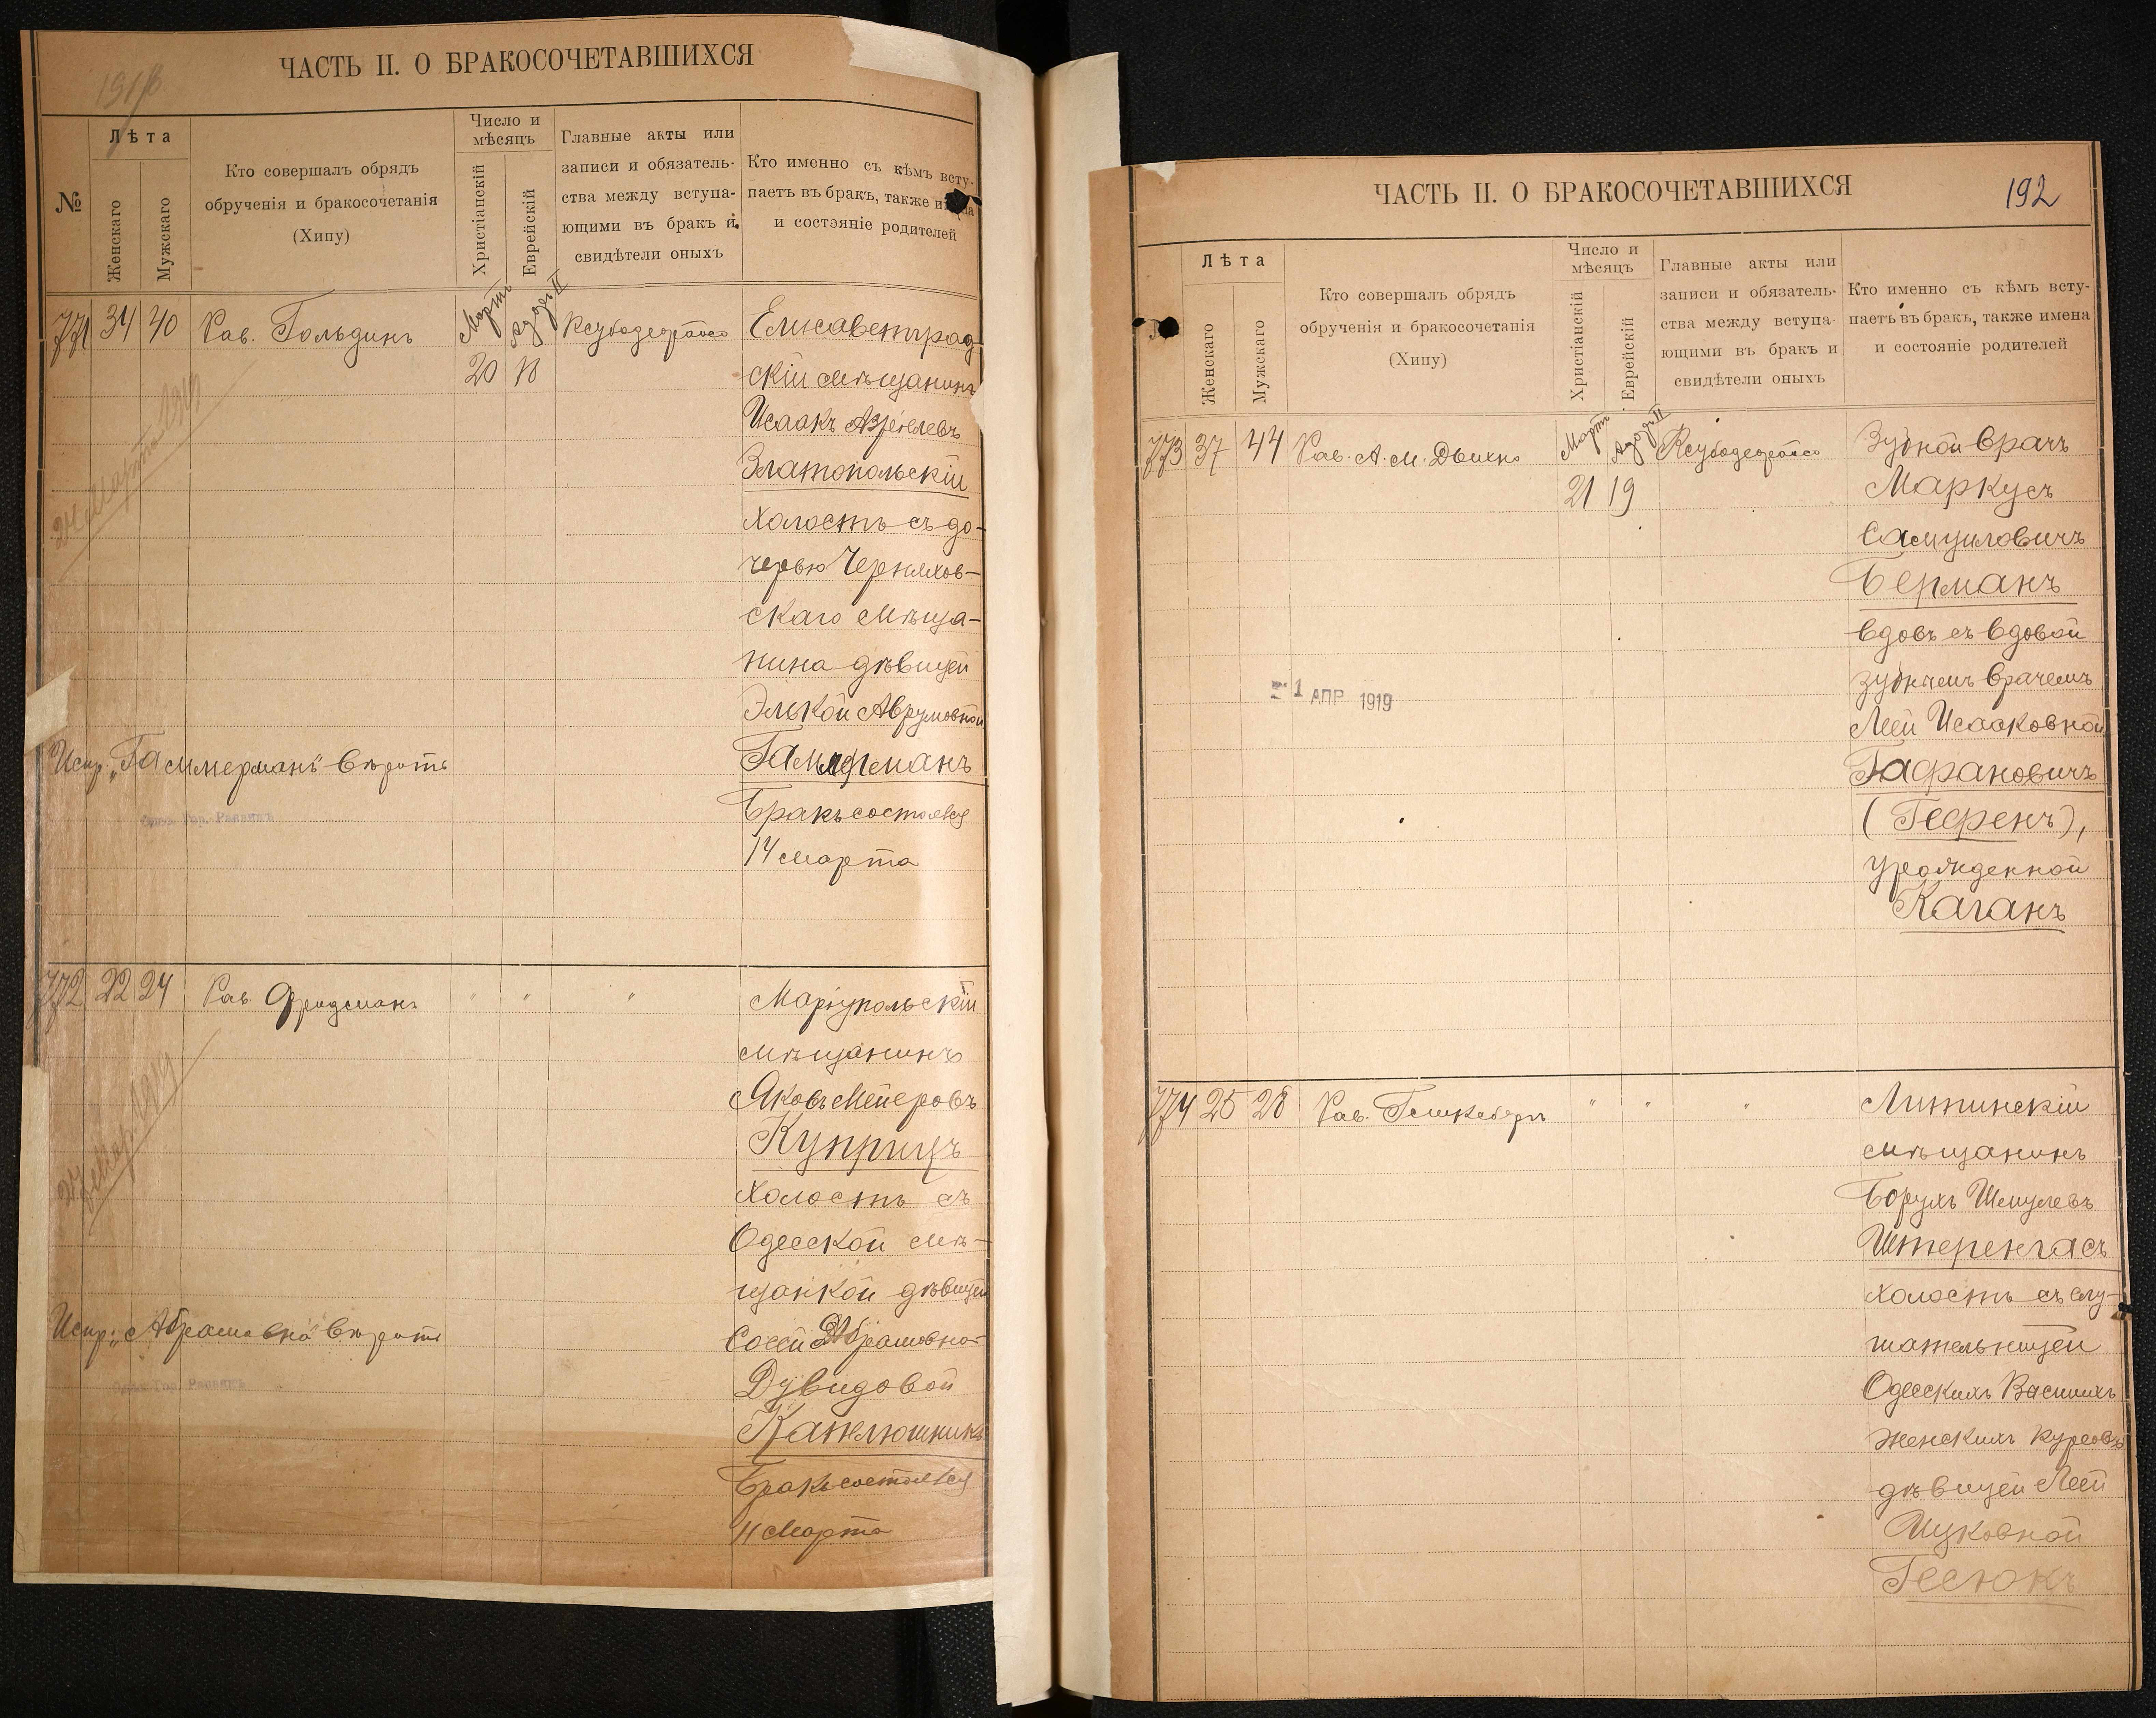 ЧАСТЬ II. О БРАКОСОЧЕТАВШИХСЯ
№
Лѣта
Женскаго
Мужскаго
Кто совершалъ обрядъ
обрученія и бракосочетанія
(Хипу)
Число и
мѣсяцъ
Христіанскій
Еврейскій
Главные акты или
записи и обязатель-
ства между вступа-
ющими въ бракъ и
свидѣтели оныхъ
Кто именно съ кѣмъ всту-
паетъ въ бракъ, также имена
и состояніе родителей
771 34 40 Рав. Гольдинъ
Мартъ
20 18
Елисаветград-
скій мѣщанинъ
Исаакъ
Златопольскій
холостъ съ до-
черью Черняхов-
скаго мѣща-
нина дѣвицей
Элькой Аврумовной
Гаммерманъ
Бракъ состоялся
14 марта
24 Марта 1919
Испр. „Гаммерманъ" вѣрить
772 22 24 Рав Фридманъ " " "
Маріупольскій
мѣщанинъ
Яковъ Мееровъ
Куприцъ
холостъ съ
Одесской мѣ-
щанкой дѣвицей
Сосей Абрамовно-
Дувидовой
Каклюшникъ
Бракъ состоялся
11 Марта
Испр: „Абрамовна" вѣрить
ЧАСТЬ II. О БРАКОСОЧЕТАВШИХСЯ
192
Лѣта
Женскаго
Мужскаго
Кто совершалъ обрядъ
обрученія и бракосочетанія
(Хипу)
Число и
мѣсяцъ
Христіанскій
Еврейскій
Главные акты или
записи и обязатель-
ства между вступа-
ющими въ бракъ и
свидѣтели оныхъ
Кто именно съ кѣмъ всту-
паетъ въ бракъ, также имена
и состояніе родителей
773 37 44 Рав. А. М. Двихно
Мартъ
21 19
Зубной врачъ
Маркусъ
Самуиловичъ
Берманъ
вдовъ съ вдовой
зубнымъ врачемъ
Леей Исааковной
Гафановичъ
(Гефенъ),
урожденной
Каганъ
1 АПР 1919
774 25 28 Рав. " " "
Литинскій
мѣщанинъ
Борухъ Шмулевъ
Штеренгасъ
холостъ съ слу-
шательницей
Одесскихъ Высшихъ
Женскихъ Курсовъ
дѣвицей Леей
Ицковной
Гесюкъ